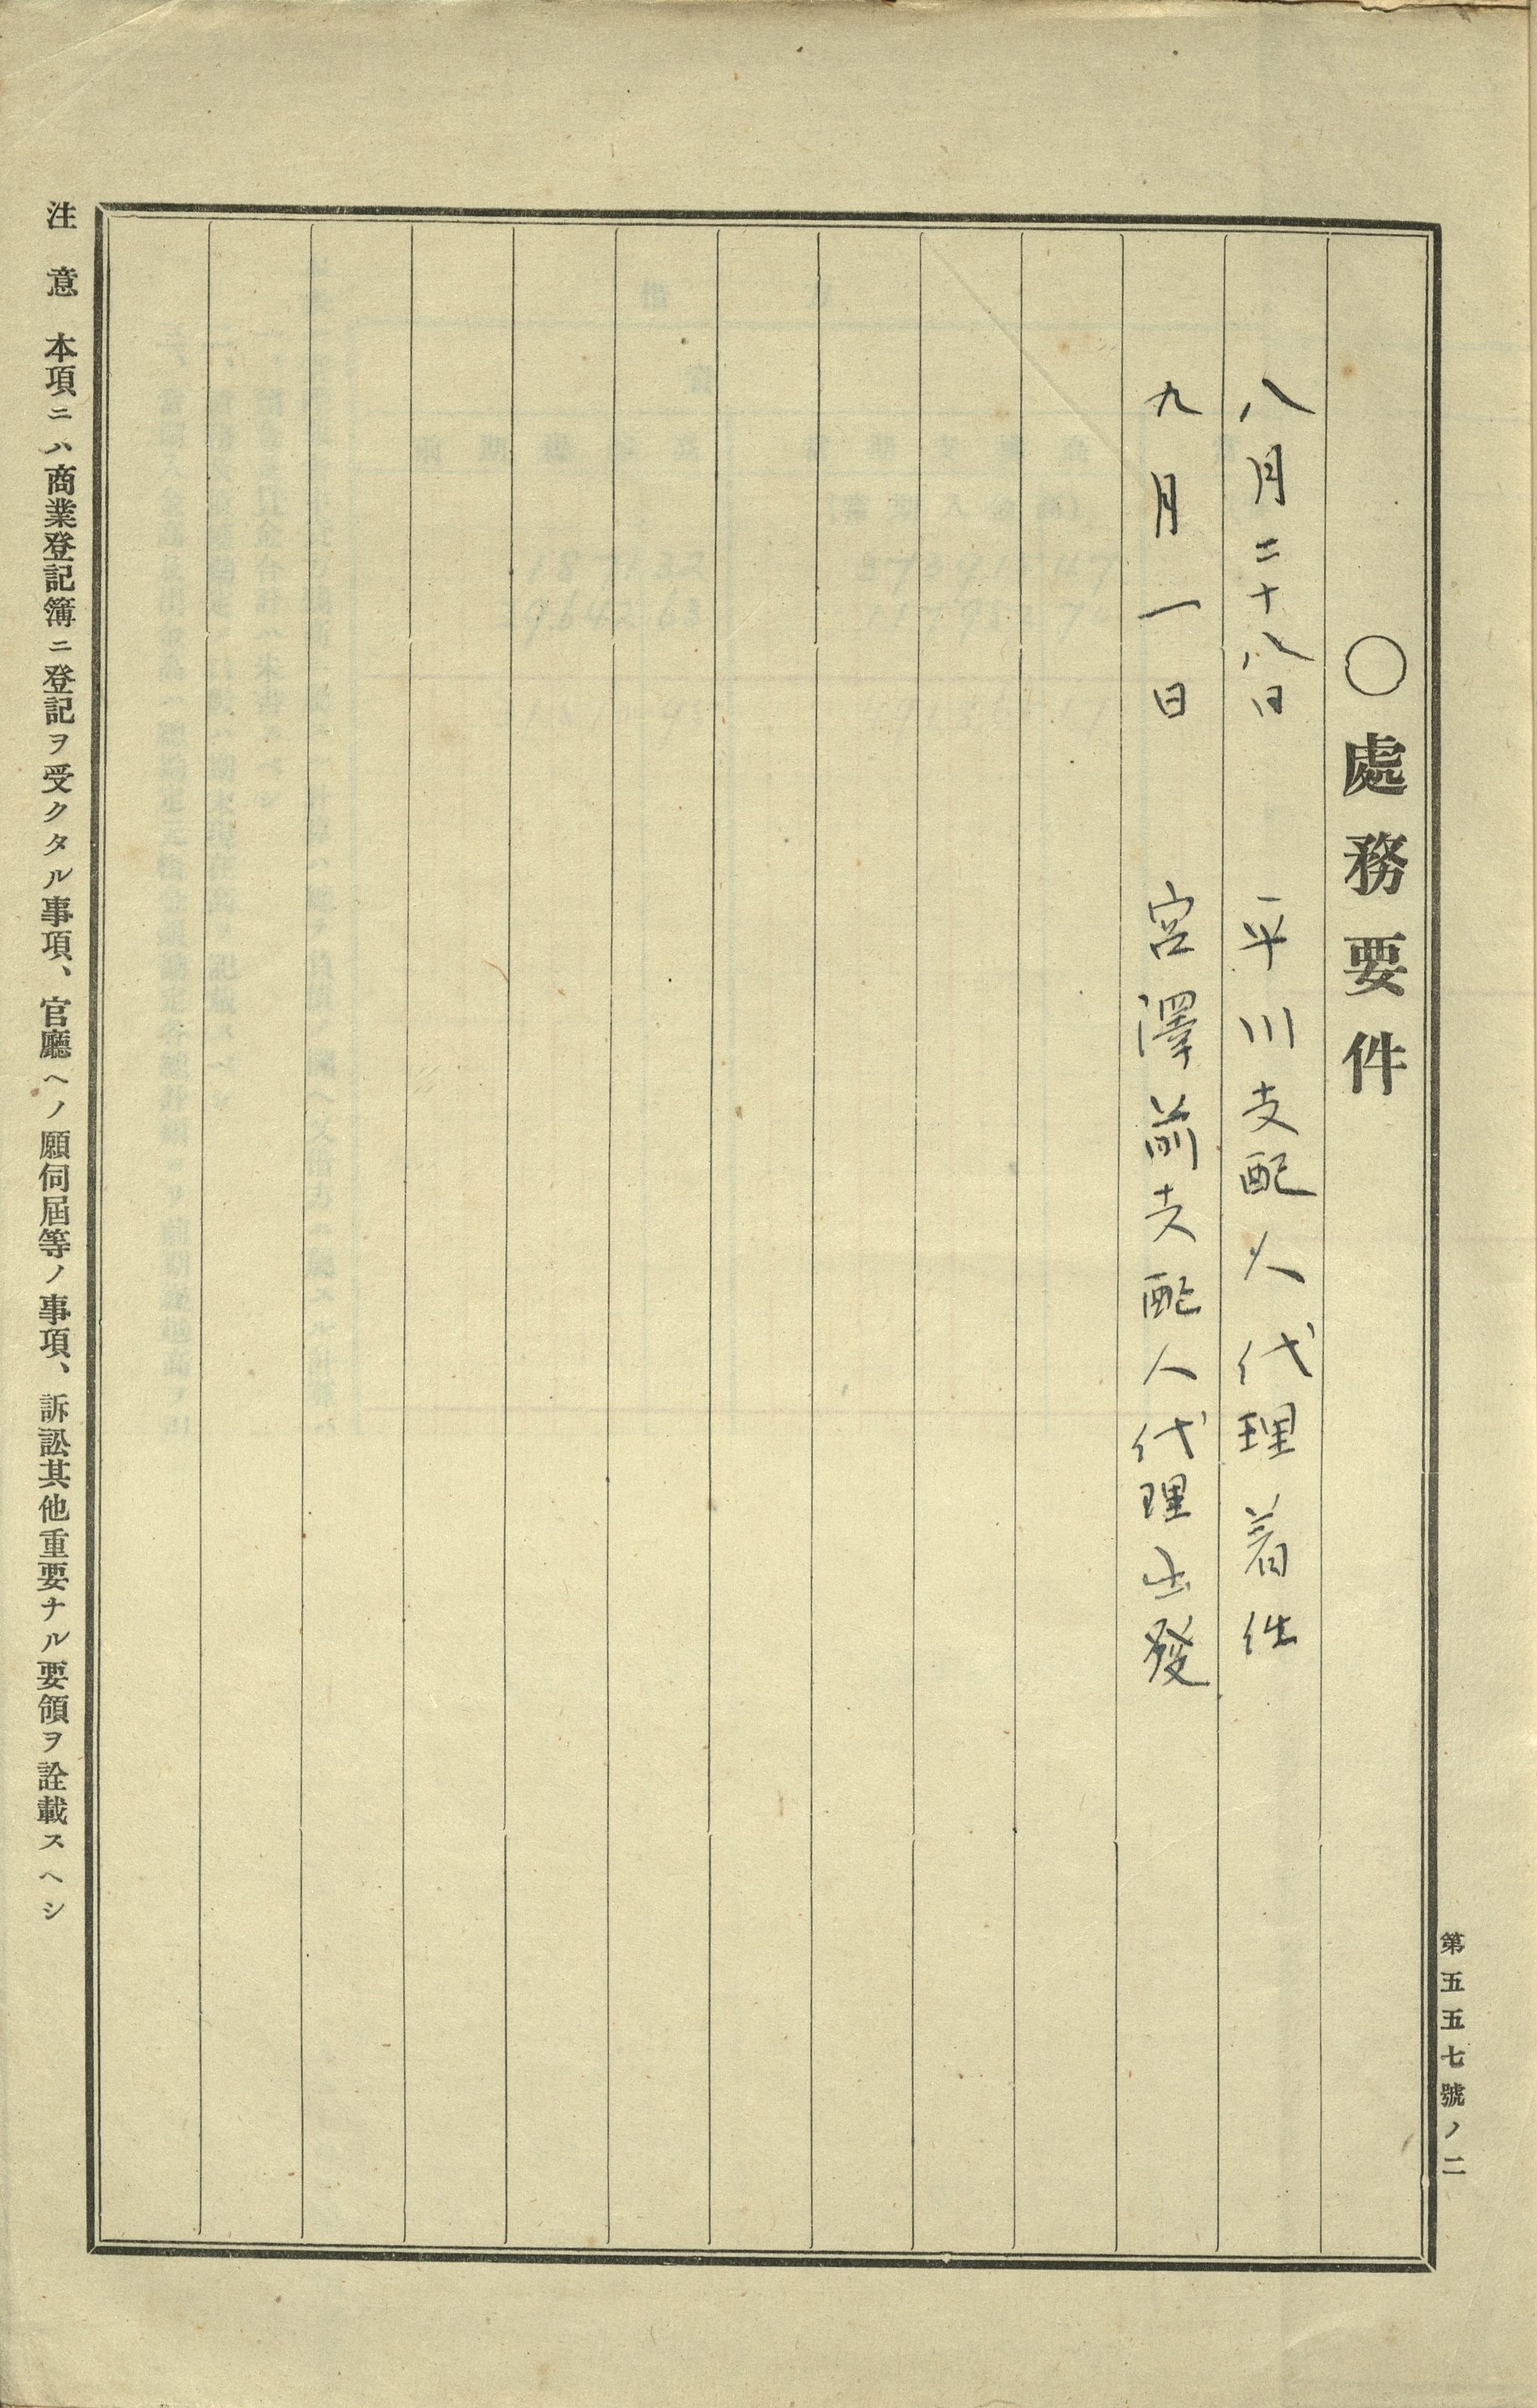 第五五七號ノ二
〇處務要件
八月二十八日　平川支配人代理着任
九月一日　宮澤前支配人代理出發
注意　本項ニハ商業登記簿ニ登記ヲ受クタル事項、官廳ヘノ願伺屆等ノ事項、訴訟其他重要ナル要領ヲ詮載スヘシ